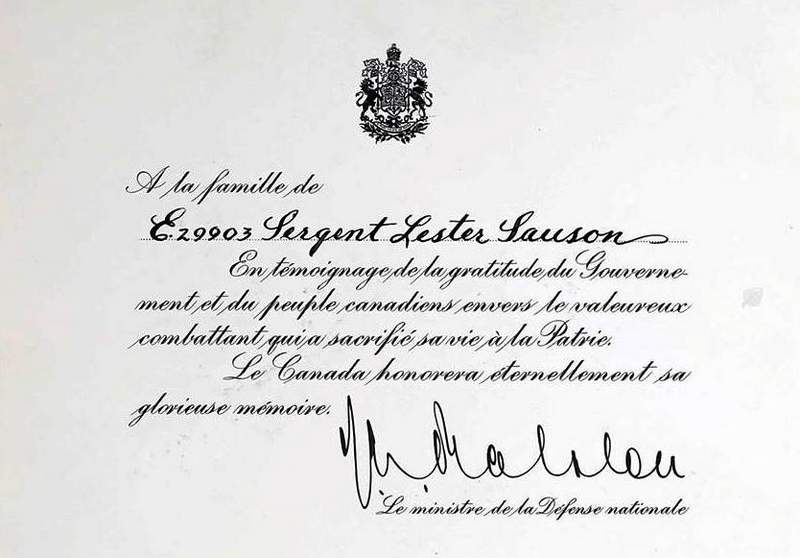 A la famille de
E.29903 Sergent Lester Sauson
En témoignage de la gratitude du Gouverne-
ment et du peuple canadiens envers le valeureux
combattant qui a sacrifié sa vie à la Patrie.
Le Canada honorera éternellement sa
glorieuse mémoire.
Le ministre de la Défense nationale